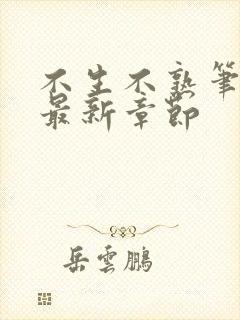 不生不熟筆
最新章節
岳雲鵬